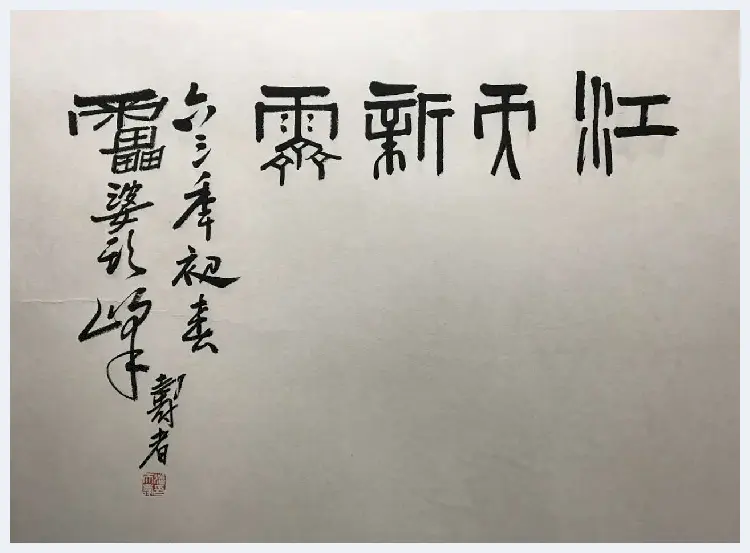 江天新霽
六三秊初春
靁婆頭峰壽者